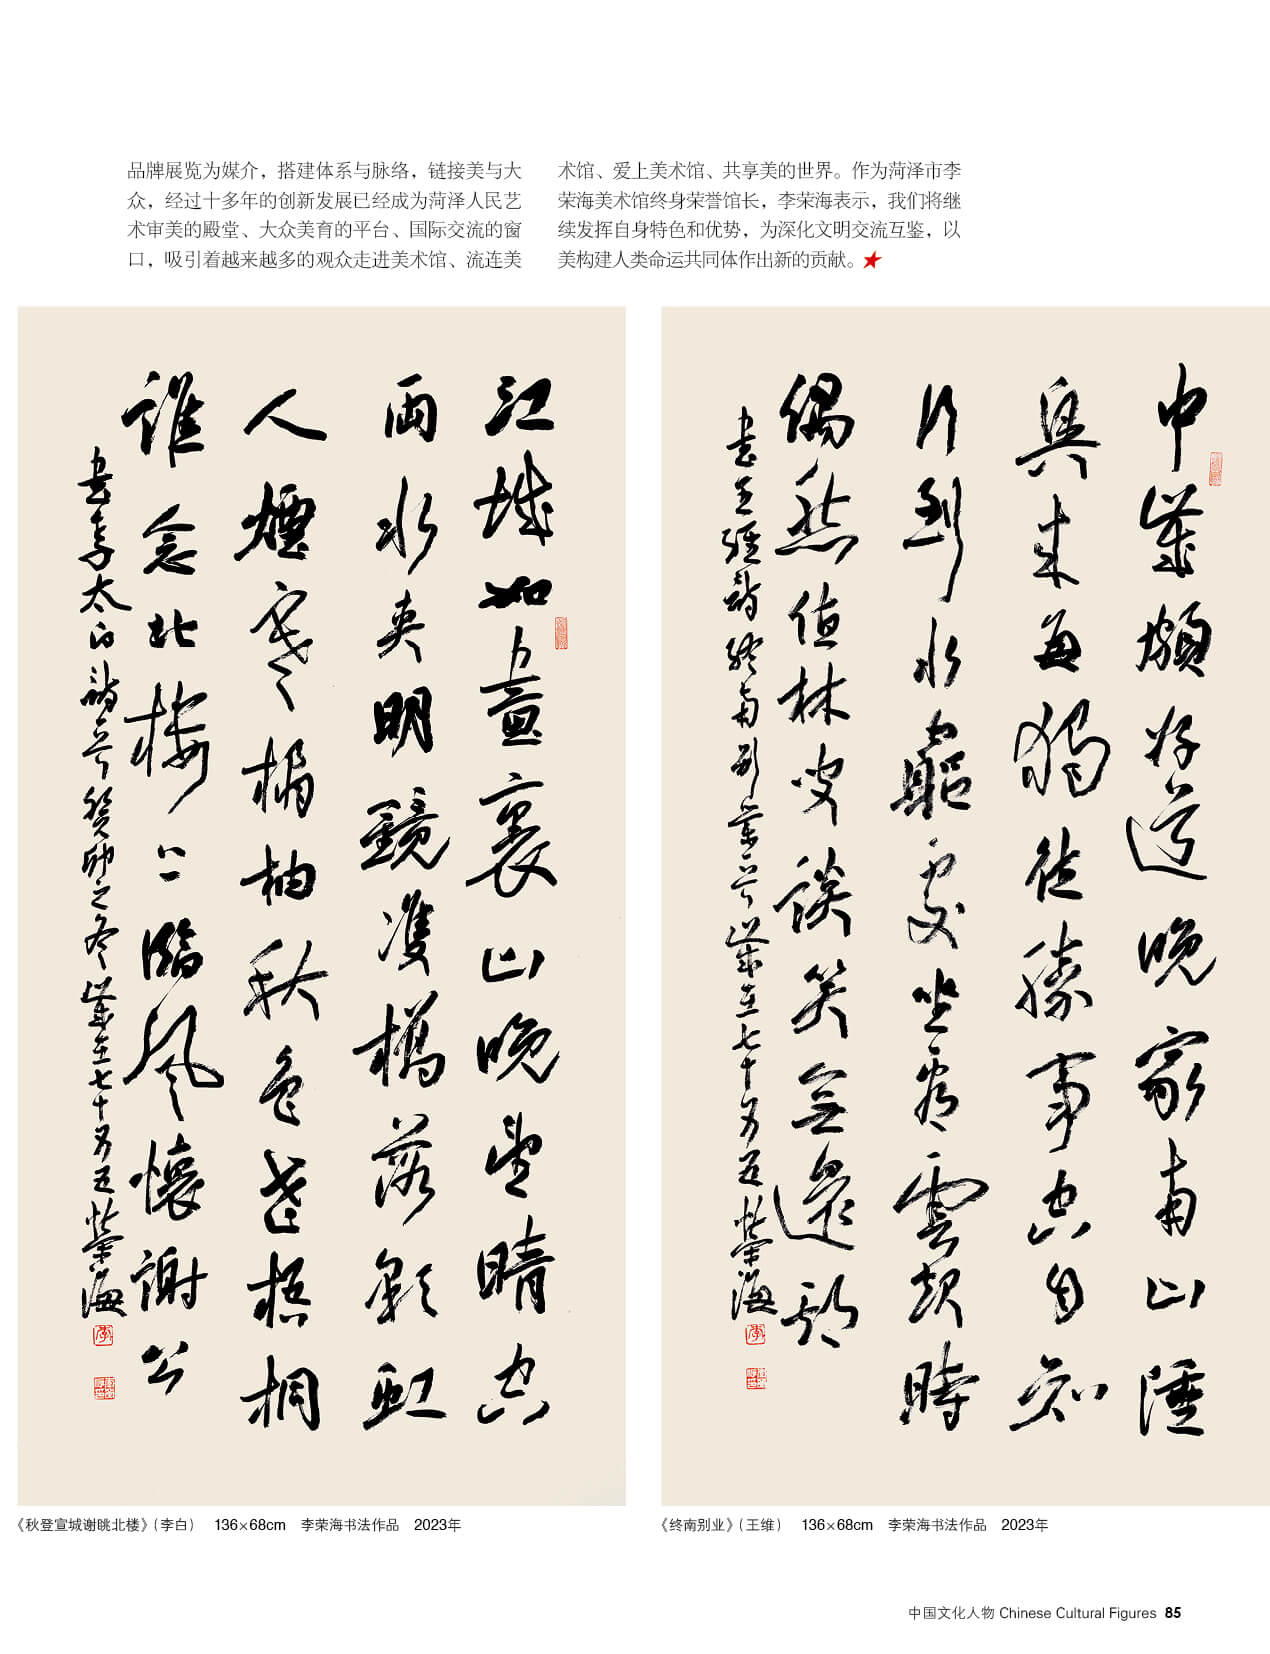 品牌展览为媒介，搭建体系与脉络，链接美与大
众，经过十多年的创新发展已经成为菏泽人民艺
术审美的殿堂、大众美育的平台、国际交流的窗
口，吸引着越来越多的观众走进美术馆、流连美
术馆、爱上美术馆、共享美的世界。作为菏泽市李
荣海美术馆终身荣誉馆长，李荣海表示，我们将继
续发挥自身特色和优势，为深化文明交流互鉴，以
美构建人类命运共同体作出新的贡献。
中歲頗好道晚家南山陲
興來每獨往勝事空自知
行到水窮處坐看雲起時
偶然值林叟談笑無還期
書王維詩終南別業一首歲在七十又五榮海
江城如畫裏山晚望晴空
兩水夾明鏡雙橋落彩虹
人煙寒橘柚秋色老梧桐
誰念北樓上臨風懷謝公
書李太白詩一首癸卯之冬歲在七十又五榮海
《秋登宣城谢眺北楼》（李白） 136×68cm 李荣海书法作品 2023年
《终南别业》（王维） 136×68cm 李荣海书法作品 2023年
中国文化人物 Chinese Cultural Figures 85